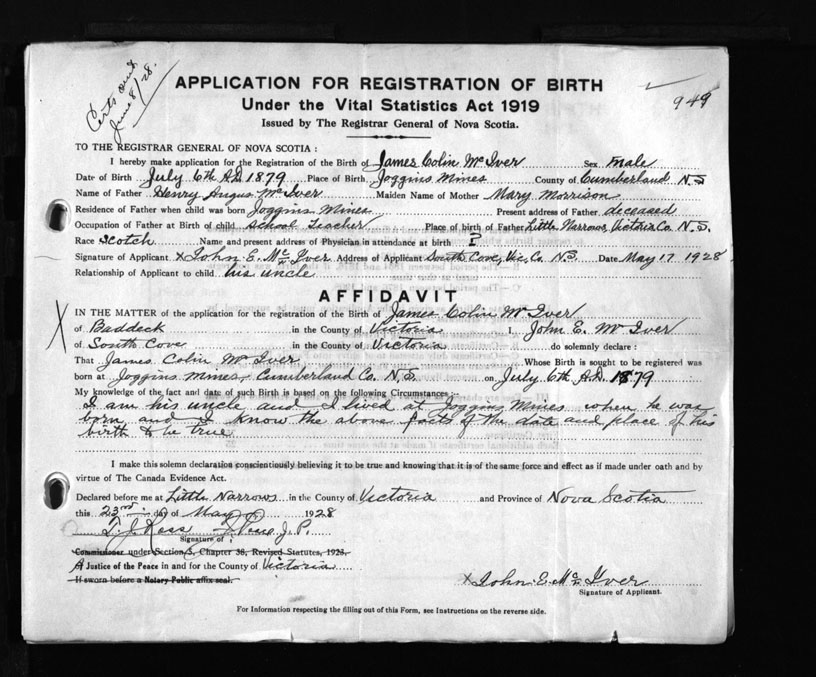 Certs out
June 8/28.
APPLICATION FOR REGISTRATION OF BIRTH
Under the Vital Statistics Act 1919
949
Issued by The Registrar General of Nova Scotia.
TO THE REGISTRAR GENERAL OF NOVA SCOTIA :
I hereby make application for the Registration of the Birth of James Colin McIver Sex male
Date of Birth July 6th A.D. 1879 Place of Birth Joggins Mines County of Cumberland N.S
Name of Father Henry Angus McIver Maiden Name of Mother Mary Morrison
Residence of Father when child was born Joggins Mines Present address of Father deceased
Occupation of Father at Birth of child School Teacher Place of birth of Father Little Narrows, Victoria Co. N.S.
Race Scotch Name and present address of Physician in attendance at birth ?
Signature of Applicant x John E. McIver Address of Applicant South Cove, Vic. Co. N.S. Date May 17 1928
Relationship of Applicant to child his uncle
AFFIDAVIT
X IN THE MATTER of the application for the registration of the Birth of James Colin McIver
of Baddeck in the County of Victoria I, John E. McIver
of South Cove in the County of Victoria do solemnly declare :
That James Colin McIver Whose Birth is sought to be registered was
born at Joggins Mines, Cumberland Co. N.S. on July 6th A.D. 1879
My knowledge of the fact and date of such Birth is based on the following Circumstances :-
I am his uncle and I lived at Joggins Mines when he was
born and I know the above facts of the date and place of his
birth to be true
I make this solemn declaration conscientiously believing it to be true and knowing that it is of the same force and effect as if made under oath and by
virtue of The Canada Evidence Act.
Declared before me at Little Narrows in the County of Victoria and Province of Nova Scotia
this 23rd day of May 1928
T. J. Ross J.P.
Signature of
Commissioner under Section 3, Chapter 38, Revised Statutes, 1923.
A Justice of the Peace in and for the County of Victoria
If sworn before a Notary Public affix seal.
x John E. McIver
Signature of Applicant.
For Information respecting the filling out of this Form, see Instructions on the reverse side.